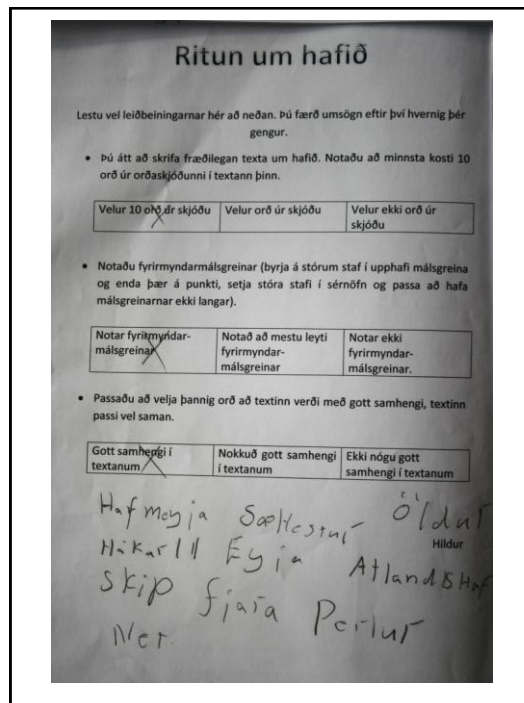 Ritun um hafið
Lestu vel leiðbeiningarnar hér að neðan. Þú færð umsögn eftir því hvernig þér
gengur.
• Þú átt að skrifa fræðilegan texta um hafið. Notaðu að minnsta kosti 10
orð úr orðaskjóðunni í textann þinn.
Velur 10 orð úr skjóðu Velur orð úr skjóðu Velur ekki orð úr
skjóðu
• Notaðu fyrirmyndarmálsgreinar (byrja á stórum staf í upphafi málsgreina
og enda þær á punkti, setja stóra stafi í sérnöfn og passa að hafa
málsgreinarnar ekki langar).
Notar fyrirmyndar- Notað að mestu leyti Notar ekki
málsgreinar fyrirmyndar- fyrirmyndar-
málsgreinar málsgreinar.
• Passaðu að velja þannig orð að textinn verði með gott samhengi, textinn
passi vel saman.
Gott samhengi í Nokkuð gott samhengi Ekki nógu gott
textanum í textanum samhengi í textanum
Hafmeyja Sæhestur Öldur
Hildur
Hákarll Eyja Atlandshaf
Skip fjara Perlur
Net